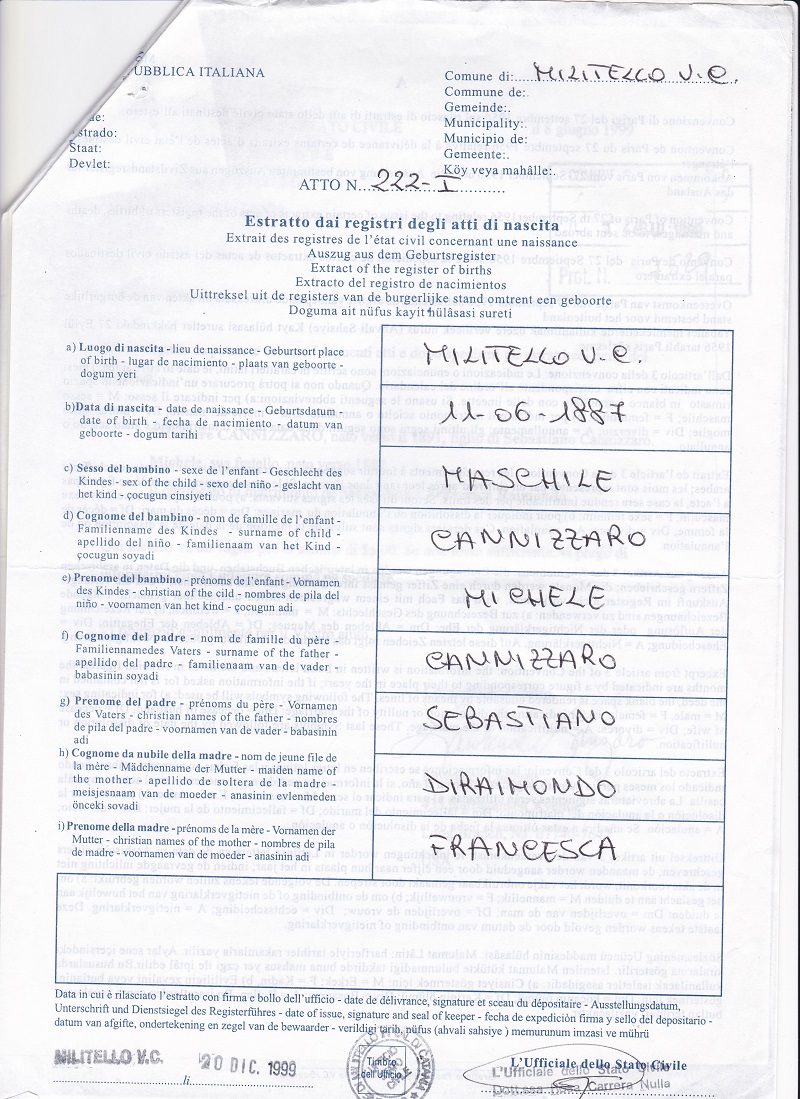 UBBLICA ITALIANA
Comune di: MILITELLO V.C.
Commune de:
Gemeinde:
Municipality:
Municipio de:
Gemeente:
Köy veya mahâlle:
Estrado:
Staat:
Devlet:
ATTO N. 222-I
Estratto dai registri degli atti di nascita
Extrait des registres de l'état civil concernant une naissance
Auszug aus dem Geburtsregister
Extract of the register of births
Extracto del registro de nacimientos
Uittreksel uit de registers van de burgerlijke stand omtrent een geboorte
Doguma ait nüfus kayit hülâsasi sureti
a) Luogo di nascita - lieu de naissance - Geburtsort place
of birth - lugar de nacimiento - plaats van geboorte -
dogum yeri
MILITELLO V.C.
b) Data di nascita - date de naissance - Geburtsdatum -
date of birth - fecha de nacimiento - datum van
geboorte - dogum tarihi
11-06-1887
c) Sesso del bambino - sexe de l'enfant - Geschlecht des
Kindes - sex of the child - sexo del niño - geslacht van
het kind - çocugun cinsiyeti
MASCHILE
d) Cognome del bambino - nom de famille de l'enfant -
Familienname des Kindes - surname of child -
apellido del niño - familienaam van het Kind -
çocugun soyadi
CANNIZZARO
e) Prenome del bambino - prénoms de l'enfant - Vornamen
des Kindes - christian of the cild - nombres de pila del
niño - voornamen van het kind - çocugun adi
MICHELE
f) Cognome del padre - nom de famille du père -
Familiennamedes Vaters - surname of the father -
apellido del padre - familienaam van de vader -
babasinin soyadi
CANNIZZARO
g) Prenome del padre - prénoms du père - Vornamen
des Vaters - christian names of the father - nombres
de pila del padre - voornamen van de vader - babasinin
adi
SEBASTIANO
h) Cognome da nubile della madre - nom de jeune file de
la mère - Mädchenname der Mutter - maiden name of
the mother - apellido de soltera de la madre -
meisjesnaam van de moeder - anasinin evlenmeden
önceki sovadi
DIRAIMONDO
i) Prenome della madre - prénoms de la mère - Vornamen der
Mutter - christian names of the mother - nombres de pila
de madre - voornamen van de moeder - anasinin adi
FRANCESCA
Data in cui è rilasciato l'estratto con firma e bollo dell'ufficio - date de délivrance, signature et sceau du dépositaire - Ausstellungsdatum,
Unterschrift und Dienstsiegel des Registerführes - date of issue, signature and seal of keeper - fecha de expedición firma y sello del depositario -
datum van afgifte, ondertekening en zegel van de bewaarder - verildigi tarih, nüfus (ahvali sahsiye) memurunum imzasi ve mührü
MILITELLO V.C. li 20 DIC. 1999
Timbro
dell'Ufficio
L'Ufficiale dello Stato Civile
L'Ufficiale dello Stato Civile
Dott.ssa Carrera Nulla